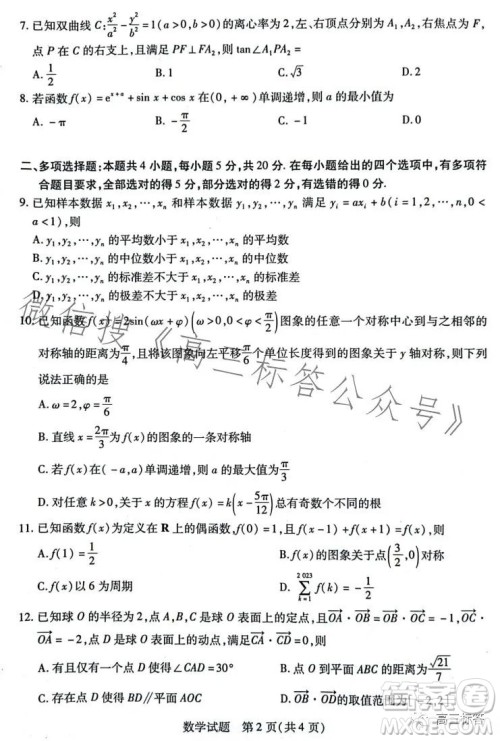 7. 已知双曲线 C: x²/a² - y²/b² = 1(a>0,b>0)的离心率为 2,左、右顶点分别为 A₁,A₂,右焦点为
F,点 P 在 C 的右支上,且满足 PF⊥FA₂,则 tan∠A₁PA₂=
A. 1/2 B. 1 C. √3 D. 2
8. 若函数 f(x)=eˣ⁺ᵃ+sin x+cos x 在(0,+∞)单调递增,则 a 的最小值为
A. -π B. -π/2 C. 0 D.
二、多项选择题:本题共 4 小题,每小题 5 分,共 20 分.在每小题给出的四个选项中,有多项符
合题目要求,全部选对的得 5 分,部分选对的得 2 分,有选错的得 0 分.
9. 已知样本数据 x₁,x₂,⋯,xₙ 和样本数据 y₁,y₂,⋯,yₙ 满足 yᵢ=axᵢ+b(i=1,2,⋯,n,0
<a<1),则
A. y₁,y₂,⋯,yₙ 的平均数小于 x₁,x₂,⋯,xₙ 的平均数
B. y₁,y₂,⋯,yₙ 的中位数小于 x₁,x₂,⋯,xₙ 的中位数
C. y₁,y₂,⋯,yₙ 的标准差不大于 x₁,x₂,⋯,xₙ 的标准差
D. y₁,y₂,⋯,yₙ 的极差不大于 x₁,x₂,⋯,xₙ 的极差
10. 已知函数 f(x)=2sin(ωx+φ)(ω>0,0<φ<π/2)图象的任意一个对称中心到与之相邻的
对称轴的距离为 π/4,且将该图象向左平移 π/6 个单位长度得到的图象关于 y 轴对称,则下列
说法正确的是
A. ω=2,φ=π/6
B. 直线 x=2π/3 为 f(x)的图象的一条对称轴
C. 若 f(x)在(-a,a)单调递增,则 a 的最大值为 π/3
D. 对任意 k>0,关于 x 的方程 f(x)=k(x-5π/12)总有奇数个不同的根
11. 已知函数 f(x)为定义在 R 上的偶函数,f(0)=1,且 f(x-1)+f(x)+f(x+1)=0,则
A. f(1)=1/2 B. f(x)的图象关于点(3/2,0)对称
C. f(x)以 6 为周期 D. ∑ f(k)=-1/2
12. 已知球 O 的半径为 2,点 A,B,C 为球 O 表面上的定点,且 OA·OB=OB·OC=-1,OA·
OC=-2,点 D 为球 O 表面上的动点,满足 OD⊥AB,则
A. 有且仅有一个点 D 使得∠CAD=30° B. 点 O 到平面 ABC 的距离为 √21/7
C. 存在点 D 使得 BD∥平面 AOC D. OA·OD的取值范围为[-2,2]
数学试题 第 2 页(共 4 页)
微信搜《高三标答公众号》
高三标答